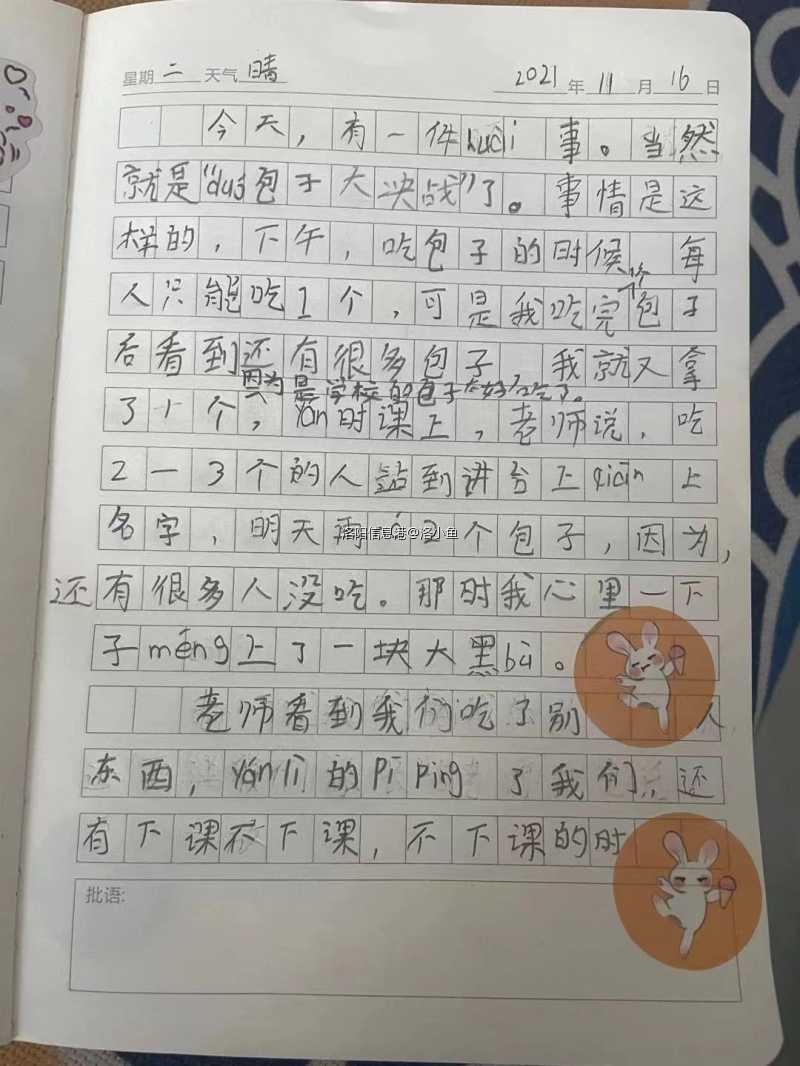 星期 二 天气 晴 2021 年 11 月 16 日
今天，有一件huài事。当然
就是“duó包子大决战”了。事情是这
样的，下午，吃包子的时候 每
人只能吃1个，可是我吃完 包子
后看到还有很多包子 我就又拿
因为是学校的包子太好吃了。
了1个，yán时课上，老师说，吃
2一3个的人站到讲台上qiān上
名字，明天再 2个包子，因为，
洛阳信息港@洛小鱼
还有很多人没吃。那时我心里一下
子méng上了一块大黑bù。
老师看到我们吃了别 人
东西，yán lì的pī píng了我们，还
有下课不下课，不下课的时
批语: